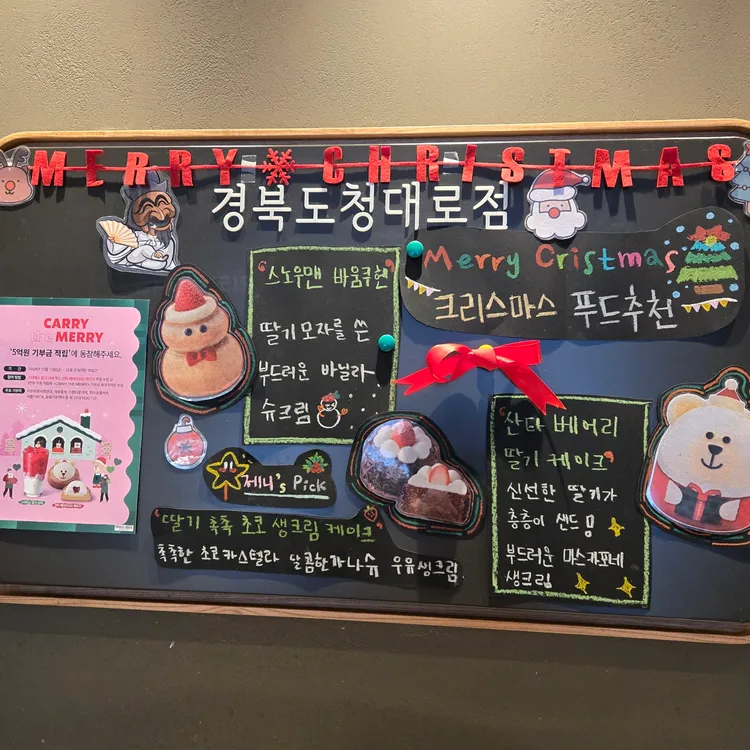 MERRY CHRISTMAS
경북도청대로점
"스노우맨 바움쿠헨"
딸기모자를 쓴
부드러운 바닐라
슈크림
Merry Cristmas
크리스마스 푸드추천
CARRY
the MERRY
'5억원 기부금 적립'에 동참해주세요.
제니's Pick
"딸기 촉촉 초코 생크림 케이크"
촉촉한 초코카스텔라 달콤한가나슈 우유생크림
"산타 베어리
딸기 케이크"
신선한 딸기가
층층이 샌드
부드러운 마스카포네
생크림